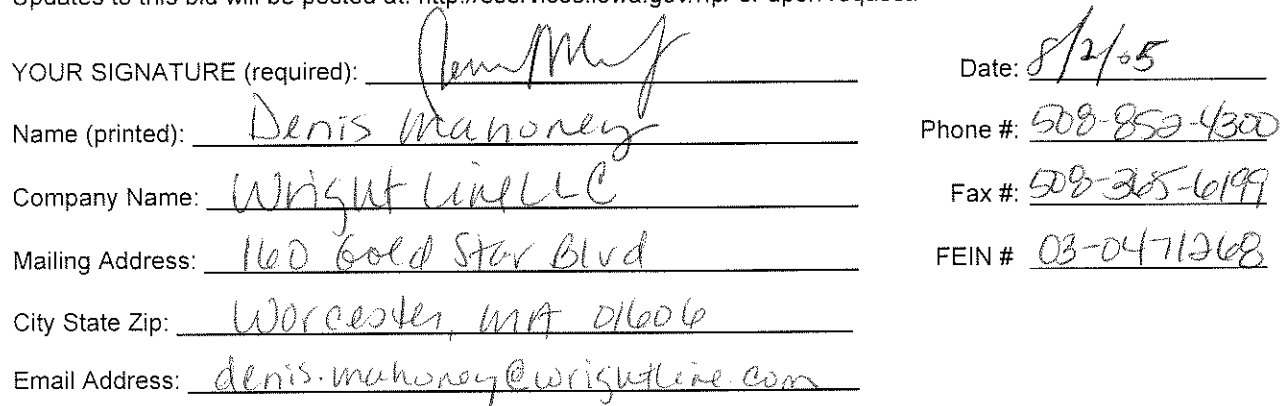 YOUR SIGNATURE (required): Date: 8/2/05
Name (printed): Denis Mahoney Phone #: 508-852-4300
Company Name: Wright Line LLC Fax #: 508-365-6199
Mailing Address: 160 Gold Star Blvd FEIN # 03-0471268
City State Zip: Worcester, MA 01606
Email Address: denis.mahoney@wrightline.com